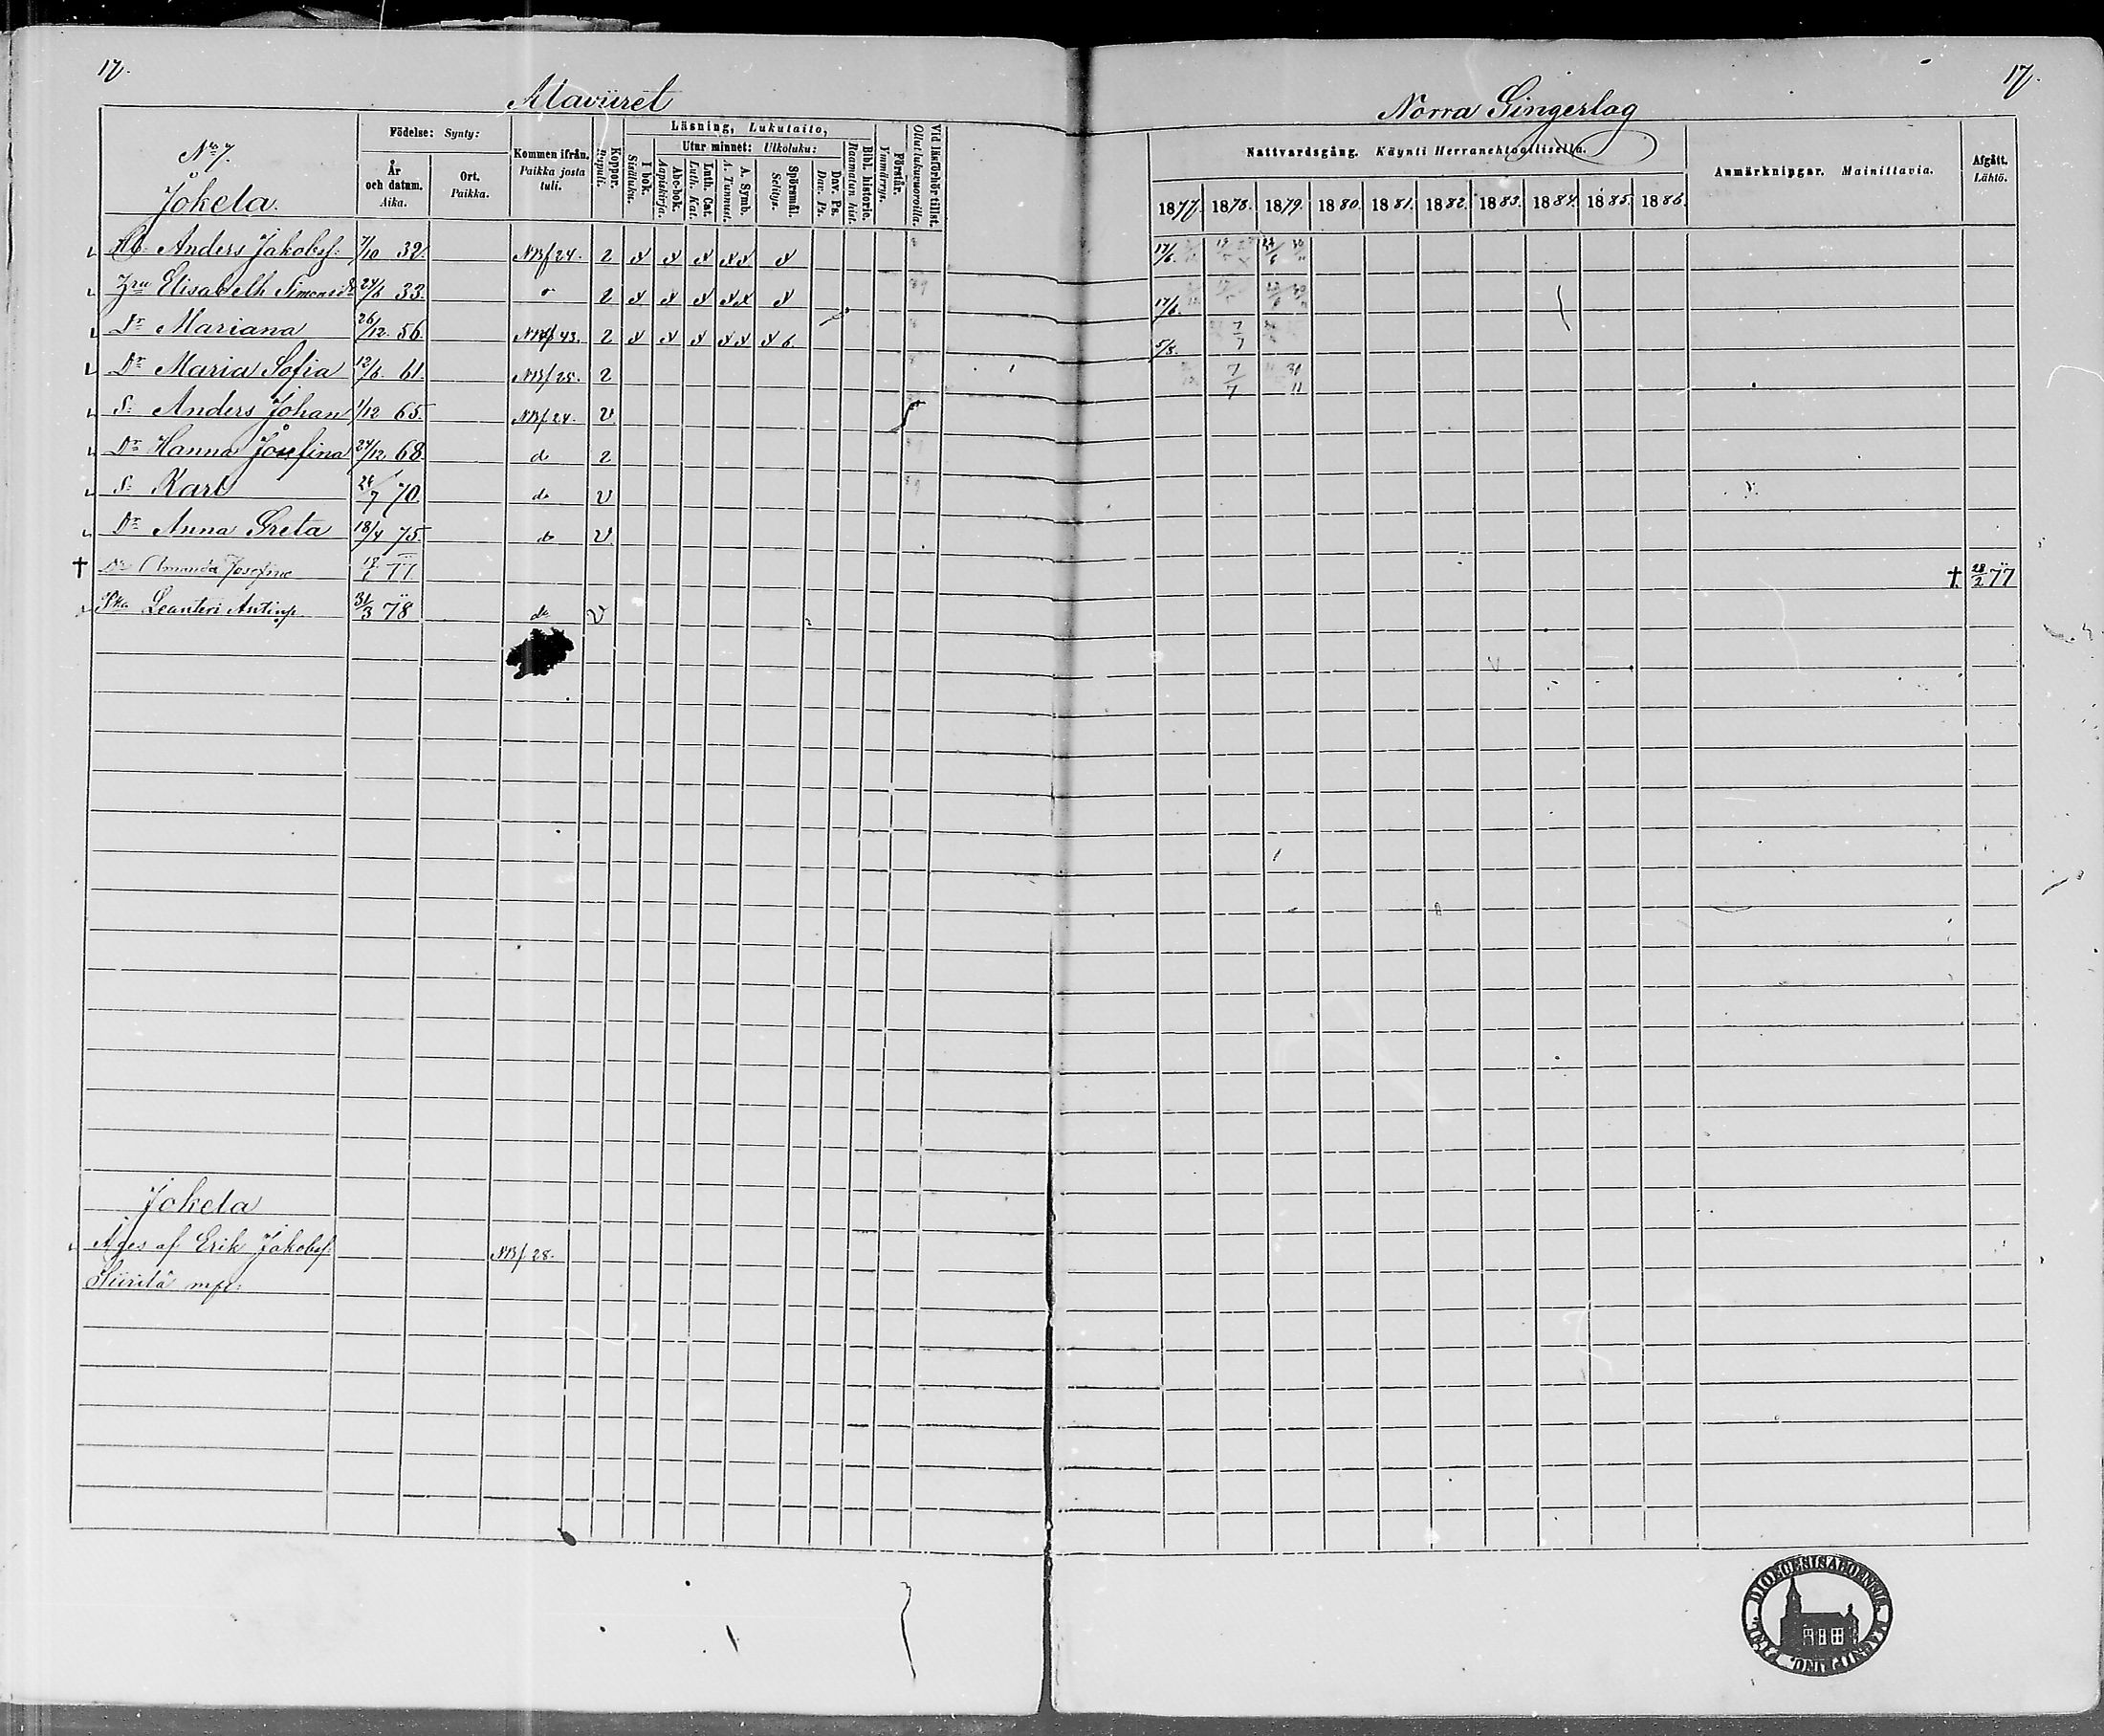 17. 17.
Alaviiret
Norra Gingerlag
Födelse: Synty:
Läsning, Lukutaito,
Utur minnet: Ulkoluku:
Kommen ifrån.
Paikka josta tuli.
År och datum.
Aika.
Ort.
Paikka.
Koppor.
Rupuli.
I bok.
Sisäluku.
Abc-bok.
Aapiskirja.
Luth. Cat.
Luth. Kat.
A. Symb.
A. Tunnust.
Spörsmål.
Selitys.
Dav. Ps.
Dav. Ps.
Bibl. historie.
Raamatun hist.
Förstår.
Ymmärrys.
Vid läsförhör tillst.
Ollut lukuvuoroilla.
Nattvardsgång. Käynti Herranehtoollisella.
1877. 1878. 1879. 1880. 1881. 1882. 1883. 1884. 1885. 1886.
Anmärkningar. Mainittavia.
Afgått.
Lähtö.
No 7.
Jokela.
Anders Jakobss: 7/10 32. NBf 24. 2 17/6.
Elisabeth Simonsdr 24/6 33. 2 17/6.
Dr Mariana 26/12 56. 43. 2 5/8. 7/7
Dr Maria Sofia 12/6. 61. NBf 25. 2 7/7 31/11
S: Anders Johan 1/12 65. NBf 24. v.
Dr Hanna Josefina 24/12 68. do 2
S: Karl 26/7 70. do v
Dr Anna Greta 18/4 75. do v.
† Dr Amanda Josefine 77 † 28/2 77
Pka Leanteri Antinp. 31/3 78 do v
Jokela
Äges af Erik Jakobss. NBf 28.
DIOECESIS ABOENSIS